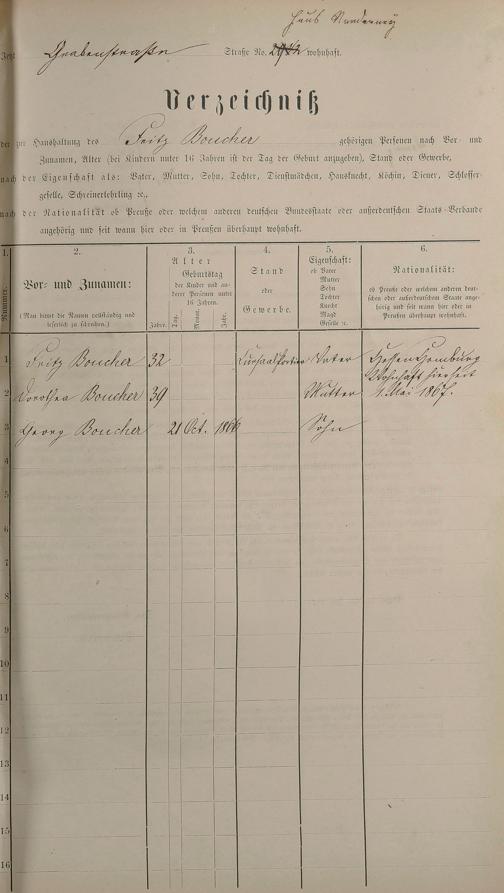 Haus Norderney
Jetzt Grabenstraße Straße No. wohnhaft.
Verzeichniß
der zur Haushaltung des Fritz Boucher gehörigen Personen nach Vor- und
Zunamen, Alter (bei Kindern unter 16 Jahren ist der Tag der Geburt anzugeben), Stand oder Gewerbe,
nach der Eigenschaft als: Vater, Mutter, Sohn, Tochter, Dienstmädchen, Hausknecht, Köchin, Diener, Schlosser-
geselle, Schreinerlehrling ꝛc.,
nach der Nationalität ob Preuße oder welchem anderen deutschen Bundesstaate oder außerdeutschen Staats-Verbande
angehörig und seit wann hier oder in Preußen überhaupt wohnhaft.
1. 2. 3. 4. 5. 6.
Nummer.
Vor- und Zunamen:
(Man bittet die Namen vollständig und
leserlich zu schreiben.)
Alter
Geburtstag
der Kinder und an-
derer Personen unter
16 Jahren.
Jahre. Tag. Monat. Jahr.
Stand
oder
Gewerbe.
Eigenschaft:
ob Vater
Mutter
Sohn
Tochter
Knecht
Magd
Geselle ꝛc.
Nationalität:
ob Preuße oder welchem anderen deut-
schen oder außerdeutschen Staate ange-
hörig und seit wann hier oder in
Preußen überhaupt wohnhaft.
1 Fritz Boucher 32 Kursaalportier Vater Hessen Homburg
Wohnhaft hier seit
2 Dorothea Boucher 39 Mutter 1. Mai 1867.
3 Georg Boucher 21 Oct. 1866 Sohn
4
5
6
7
8
9
10
11
12
13
14
15
16